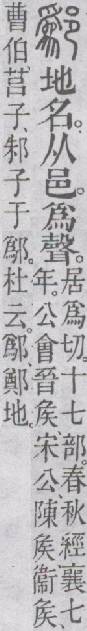 鄬地名。从邑。爲聲。
居爲切。十七部。春秋經襄七
年。公會晉矦宋公、陳矦衞矦、
曹伯、莒子、邾子于鄬。杜云。鄬鄭地。